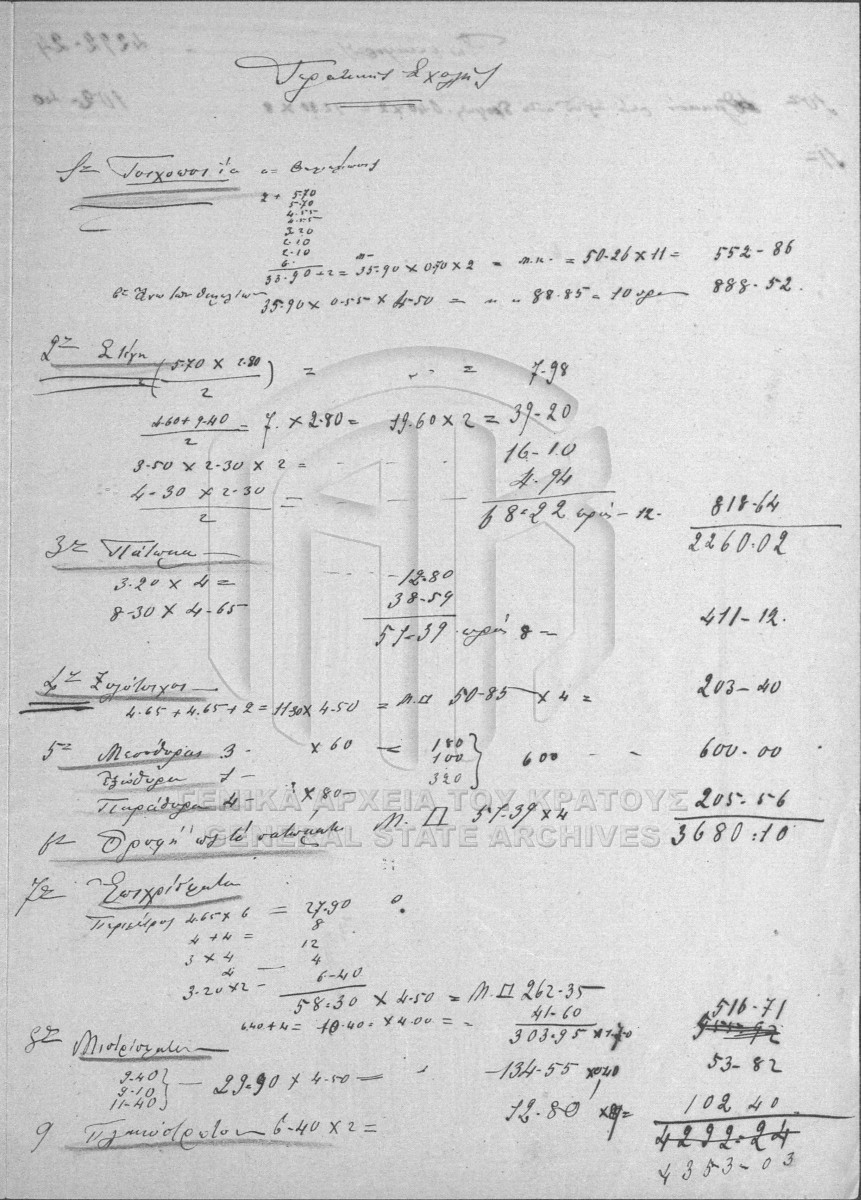 Ιερατικής Σχολής
1ον Τοιχοποιία α= Θεμελίωσις
2 + 5.70
5.70
4.55
4.55
3.20
2.10
2.10
6.
33.90+2=35.90 x 0.70 x 2 = μ.κ. = 50.26 x 11 = 552-86
β= Άνω των θεμελίων 35.90 x 0.55 x 4.50 = κ.κ 88.85 = 10 888.52.
2ον Στέγη
(5.70 x 2.80) / 2 = " " = 7.98
4.60 + 9.40 / 2 = 7. x 2.80 = 19.60 x 2 = 39-20
3-50 x 2-30 x 2 = 16-10
4-30 x 2-30 / 2 = 4.94
68=22 πρός - 12. 818-64
2260.02
3ον Πάτωμα
3.20 x 4 = 12.80
8-30 x 4-65 38-59
51-39 πρός 8 = 411-12
4ον Ξυλότοιχος
4.65 + 4.65 + 2 = 11.30 x 4.50 = Μ.□ 50-85 x 4 = 203-40
5ον Μεσόθυραι 3. x 60 180
Εξώθυρα 1- 100 600 - - 600.00
Παράθυρα 4- x 80- 320
6ον Οροφή Μ. □ 51-39 x 4 205-56
3680.10
7ον Επιχρίσματα
Περιμέτρος 4.65 x 6 = 27.90
4 + 4 = 8
3 x 4 12
4 - 4
3-20 x 2 - 6-40
58.30 x 4-50 = Μ.□ 262-35
6.40 + 4 = 10.40 = x 4.00 = 41-60
303.95 x 1.70 516-71
8ον Μιστρίσματα
9-40
9-10 - 29.90 x 4-50 = -134-55 x 0.40 53-82
11-40
9 Πλακόστρωτον 6-40 x 2 = 12.80 x 8 = 102 40
4292-24
4353-03
ΓΕΝΙΚΑ ΑΡΧΕΙΑ ΤΟΥ ΚΡΑΤΟΥΣ
GENERAL STATE ARCHIVES